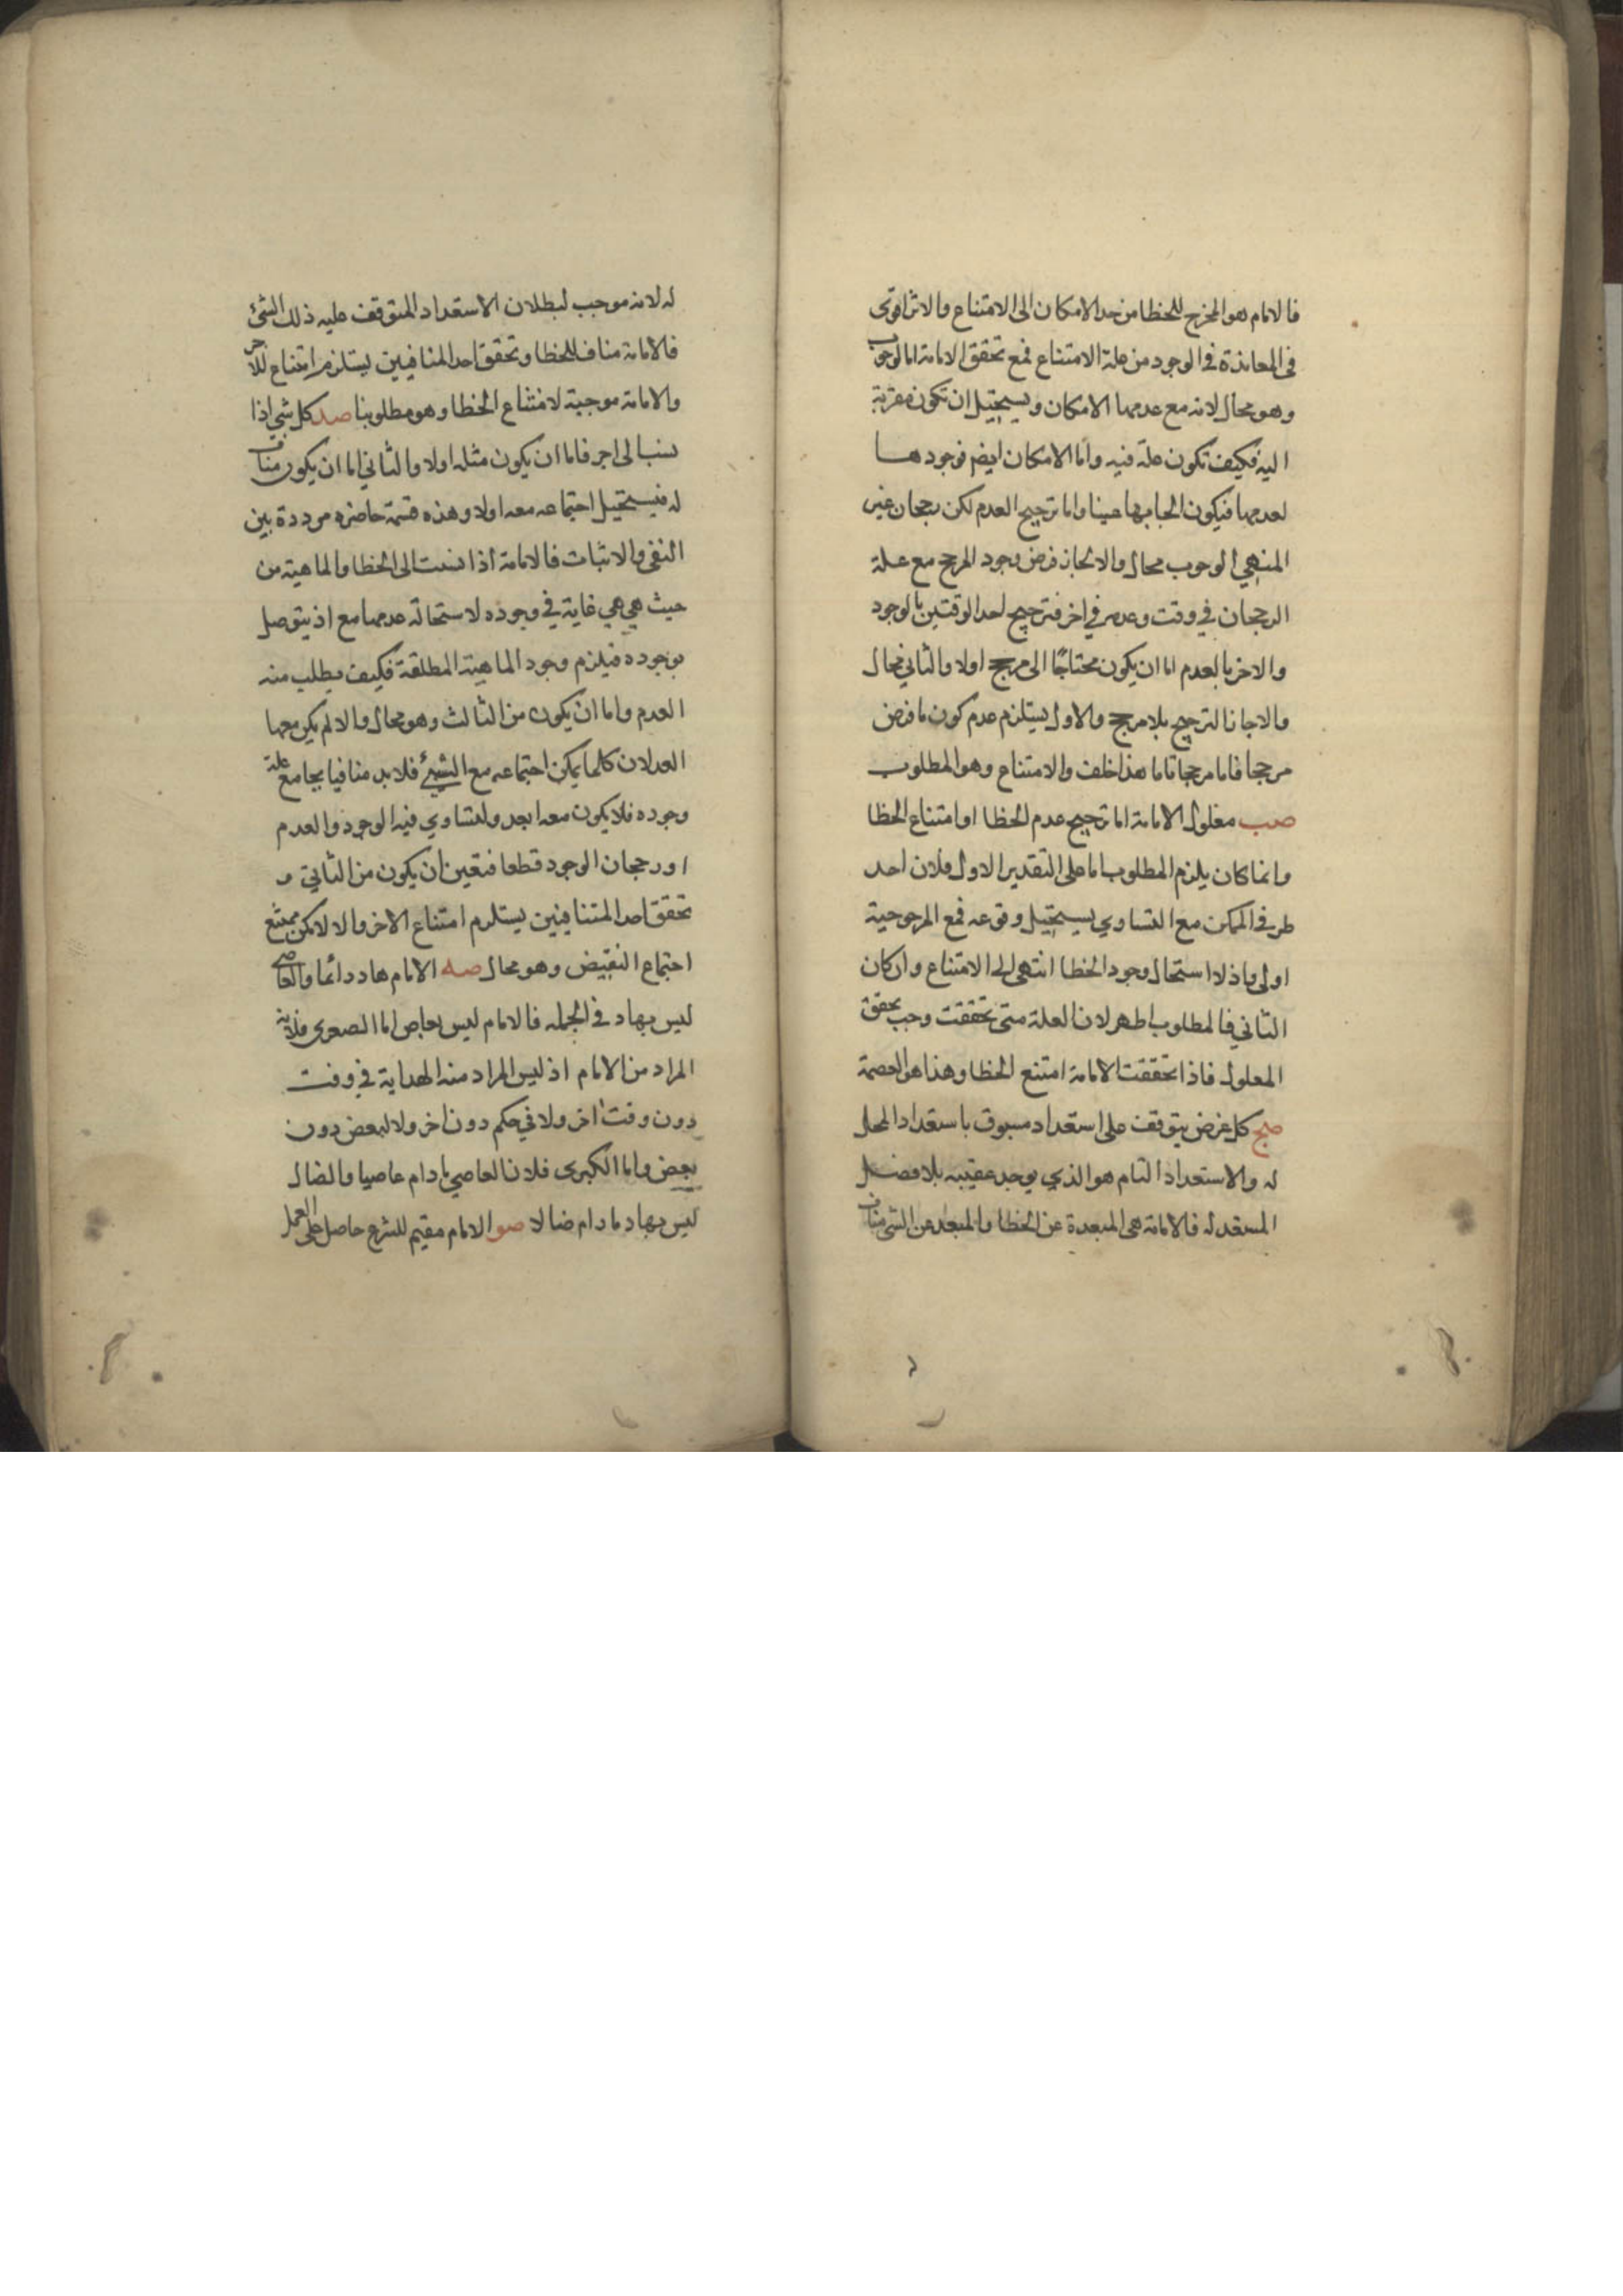 فالامام هو المخرج للخطا من حد الامكان الى الامتناع والاثر اقوى
في المعاندة في الوجود من علة الامتناع فمع تحقق الامامة اما الوجوب
وهو محال لانه مع عدمها الامكان ويستحيل ان تكون مقربة
اليه فكيف تكون علة فيه واما الامكان ايضم فوجودها
لعدمها فيكون الحاجة بها عبثا واما ترجيح العدم لكن رجحان غير
المنتهي الوجوب محال والا لجاز فرض وجود المرجح مع علة
الرجحان في وقت وعدمه في اخر فترجيح احد الوقتين بالوجود
والاخر بالعدم اما ان يكون محتاجا الى مرجح اولا والثاني محال
والا جاز الترجيح بلا مرجح والاول يستلزم عدم كون ما فرض
مرجحا تاما مرجحا تاما هذا خلف والامتناع وهو المطلوب
صب معلول الامامة اما ترجيح عدم الخطا او امتناع الخطا
وانما كان يلزم المطلوب اما على التقدير الاول فلان احد
طرفي الممكن مع التساوي يستحيل وقوعه فمع المرجوحية
اولى واذلا استحال وجود الخطا انتهى الى الامتناع وان كان
الثاني فالمطلوب اظهر لان العلة متى تحققت وجب تحقق
المعلول فاذا تحققت الامامة امتنع الخطا وهذا هو العصمة
صج كل غرض يتوقف على استعداد مسبوق باستعداد المحل
له والاستعداد التام هو الذي يوجد عقيبه بلا فصل
المستعد له فالامامة هي المبعدة عن الخطا والمبعد عن الشي مناف
له لانه موجب لبطلان الاستعداد المتوقف عليه ذلك الشئ
فالامامة مناف للخطا وتحقق احد المنافيين يستلزم امتناع للاخر
والامامة موجبة لامتناع الخطا وهو مطلوبنا صد كل شي اذا
نسب الى اخر فاما ان يكون مثله اولا والثاني اما ان يكون مناف
له فيستحيل اجتماعه معه اولا وهذه قسمة حاضره مرددة بين
النفي والاثبات فالامامة اذا نسبت الى الخطا والماهية من
حيث هي هي غاية في وجوده لاستحالة عدمها مع اذ يتوصل
بوجوده فيلزم وجود الماهية المطلقة فكيف يطلب منه
العدم واما ان يكون من الثالث وهو محال والا لم يكن معها
العدلان كلما يمكن اجتماعه مع الشئ فلا بد منافيا بجامع علة
وجوده فلا يكون معه ابعد ولتساوي فيه الوجود والعدم
او رجحان الوجود قطعا فتعين ان يكون من الثاني و
تحقق احد المتنافيين يستلزم امتناع الاخر والا لامكن ممتنع
اجتماع النقيض وهو محال صه الامام هاد دائما والعاصي
ليس بهاد في الجمله فالامام ليس بعاص اما الصغرى فلانه
المراد من الامام اذ ليس المراد منه الهداية في وقت
دون وقت اخر ولا في حكم دون اخر ولا لبعض دون
بعض واما الكبرى فلان العاصي مادام عاصيا والضال
ليس بهاد مادام ضالا صو الامام مقيم للشرع حاصل على العمل